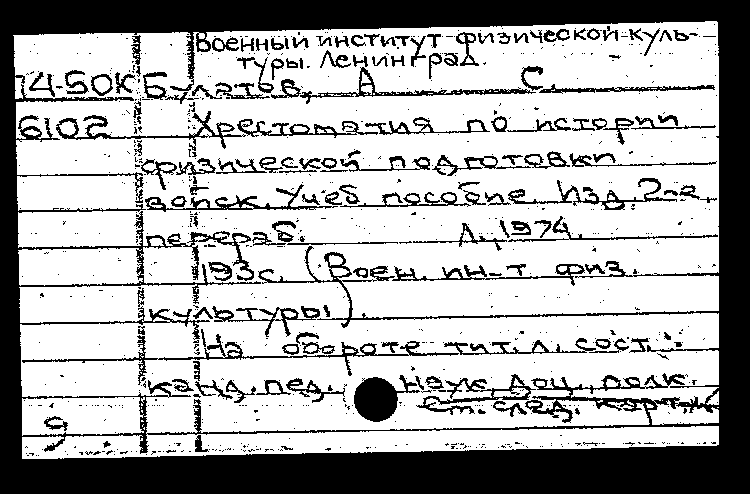 Военный институт физической куль-
туры. Ленинград.
74-50К Булатов, А С.
6102 Хрестоматия по истории
физической подготовки
войск. Учеб пособие. Изд. 2-е,
перераб. Л., 1974.
193с. (Воен. ин-т физ.
культуры).
На обороте тит. л. сост.:
канд. пед. наук, доц., полк.
см. след. карт.
9